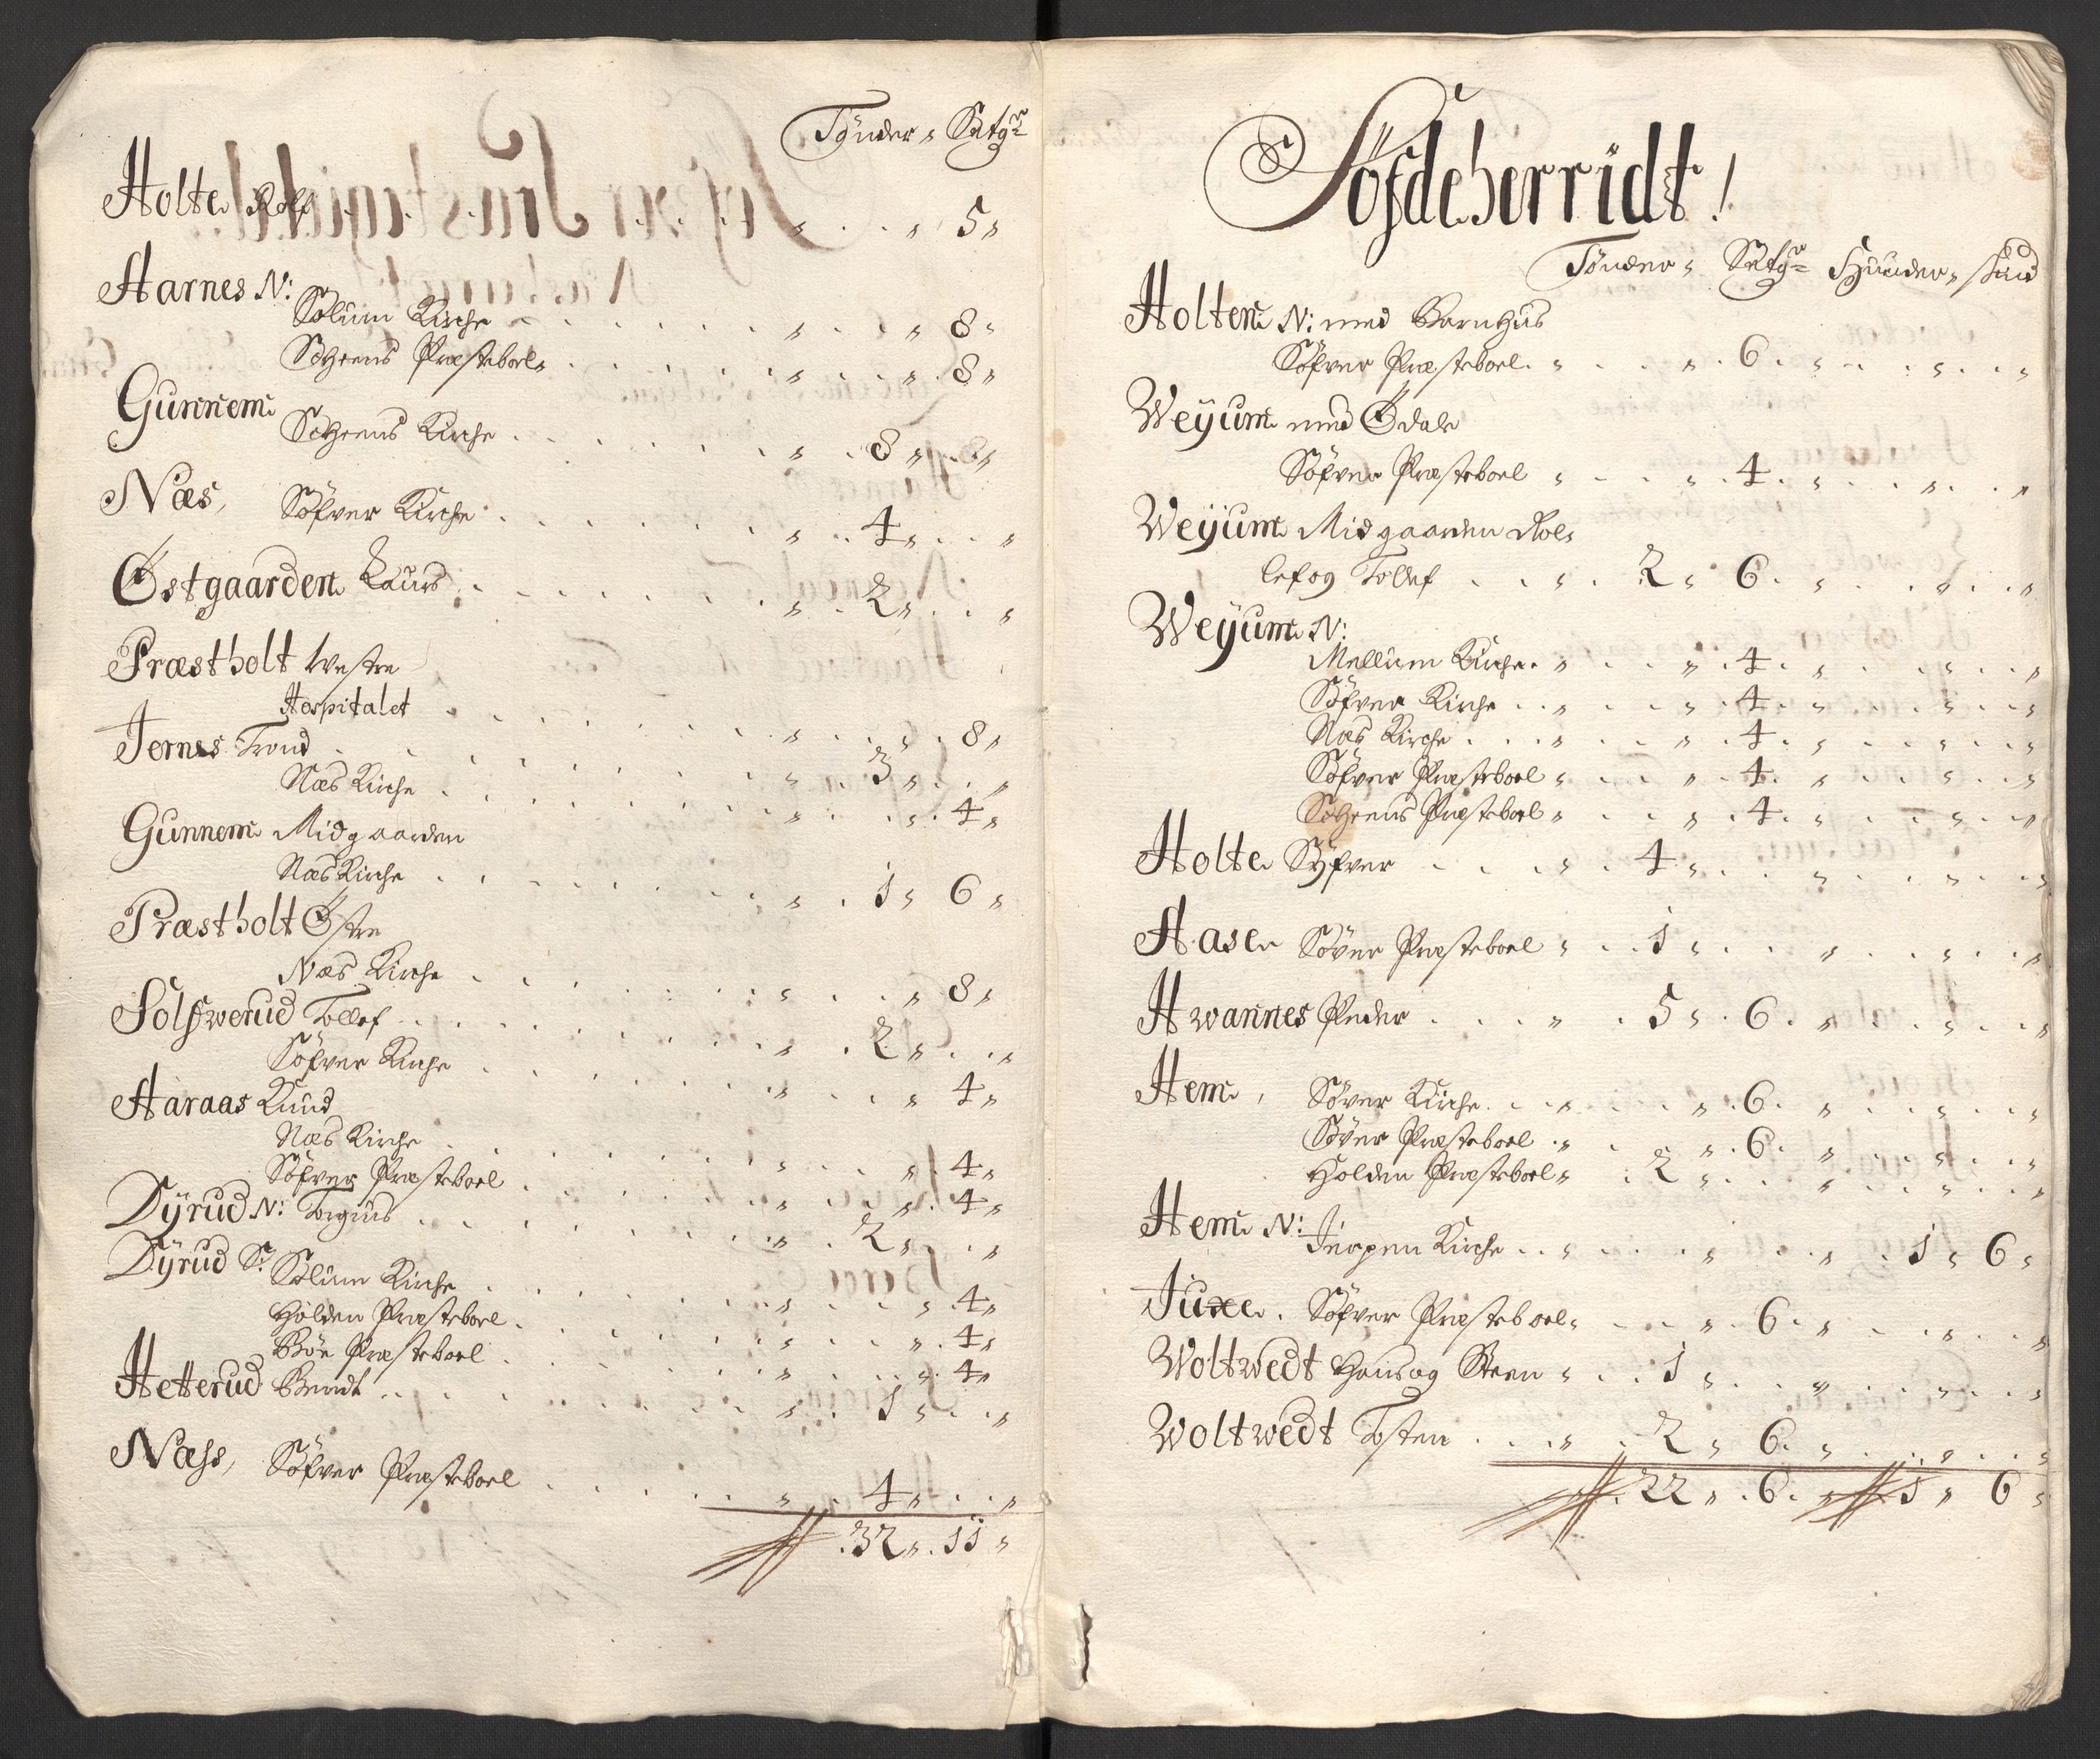 Tönder „ Setgr
Holte Rolf . . . „ . . „ 5 „
Aarnes N:
Solum Kirche . . . „ . . „ 8 „
Scheens Præsteboel . . . „ . . „ 8 „
Gunnem
Scheens Kirche . . . „ . 8 „ . 8 „
Næs, Söfver Kirche . . . „ . . 4 „ . . „
Østgaarden Laurs . . . „ . 2 „ . . „
Præstholt Vestre
Hospitalet . . . „ . . „ . 8 „
Jernes Trond . . . „ . 3 „ . . „
Næs Kirche . . . „ . . „ . 4 „
Gunnem Midgaarden
Næs Kirche . . . „ . 1 „ 6 „
Præstholt Østre
Næs Kirche . . . „ . . „ 8 „
Solswerud Tollef . . . „ . 2 „ . . „
Söfver Kirche . . . „ . . „ 4 „
Aaraas Knud
Næs Kirche . . . „ . . „ . 4 „
Söfver Præsteboel . . . „ . . „ . 4 „
Dÿrud N: Torgius . . . „ . 2 „ . . „
Dÿrud S:
Solum Kirche . . . „ . . „ . 4 „
Holden Præsteboel . . . „ . . „ . 4 „
Böe Præsteboel . . . „ . . „ . 4 „
Hetterud Bendt . . . „ . 1 „ . . „
Næss, Söfver Præsteboel . . . „ . 4 „ . . „
32 „ . 11 „
Söfdeherridt!
Tönder „ Setgr Huuder „ skind
Holten N: med Bornhus
Söfver Præsteboel . „ . . „ . 6 . „ . . „ . . „
Weÿum med Ødale
Söfver Præsteboel „ . . „ . 4 . „ . . „ . . „
Weÿum Midgaarden Rol„
lef og Tollef . . „ . 2 „ 6 . „ . . „ . . „
Weÿum N:
Mellum Kirche . „ . . „ . 4 . „ . . „ . . „
Söfver Kirche . . „ . . „ . 4 . „ . . „ . . „
Næs Kirche . . . „ . . „ . 4 . „ . . „ . . „
Söfver Præsteboel „ . . „ . 4 . „ . . „ . . „
Scheens Præsteboel „ . . „ . 4 . „ . . „ . . „
Holte Syfver . . . „ . 4 „ . . „ . . „ . . „
Aase Söver Præsteboel „ . . 1 „ . . „ . . „ . . „
Hwannes Peder . . . „ . 5 „ . 6 . „ . . „ . . „
Hem, Söver Kirche . . „ . . „ . 6 . „ . . „ . . „
Söver Præsteboel . „ . . „ . 6 . „ . . „ . . „
Holden Præsteboel „ . 2 „ . . „ . . „ . . „
Hem N: Jerpen Kirche . . „ . . „ . . „ . 1 „ 6 „
Juxe . Söfver Præsteboel „ . . „ . 6 . „ . . „ . . „
Woltwedt Hans og Steen „ . . 1 „ . . „ . . „ . . „
Woltwedt Tosten . . . „ . 2 „ 6 . „ . . „ . . „
22 „ . 6 . „ 1 „ 6 „